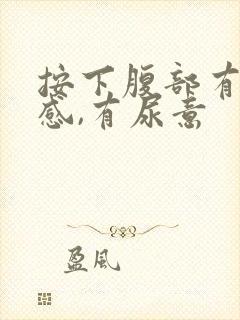 按下腹部有
感,有尿意
盈风